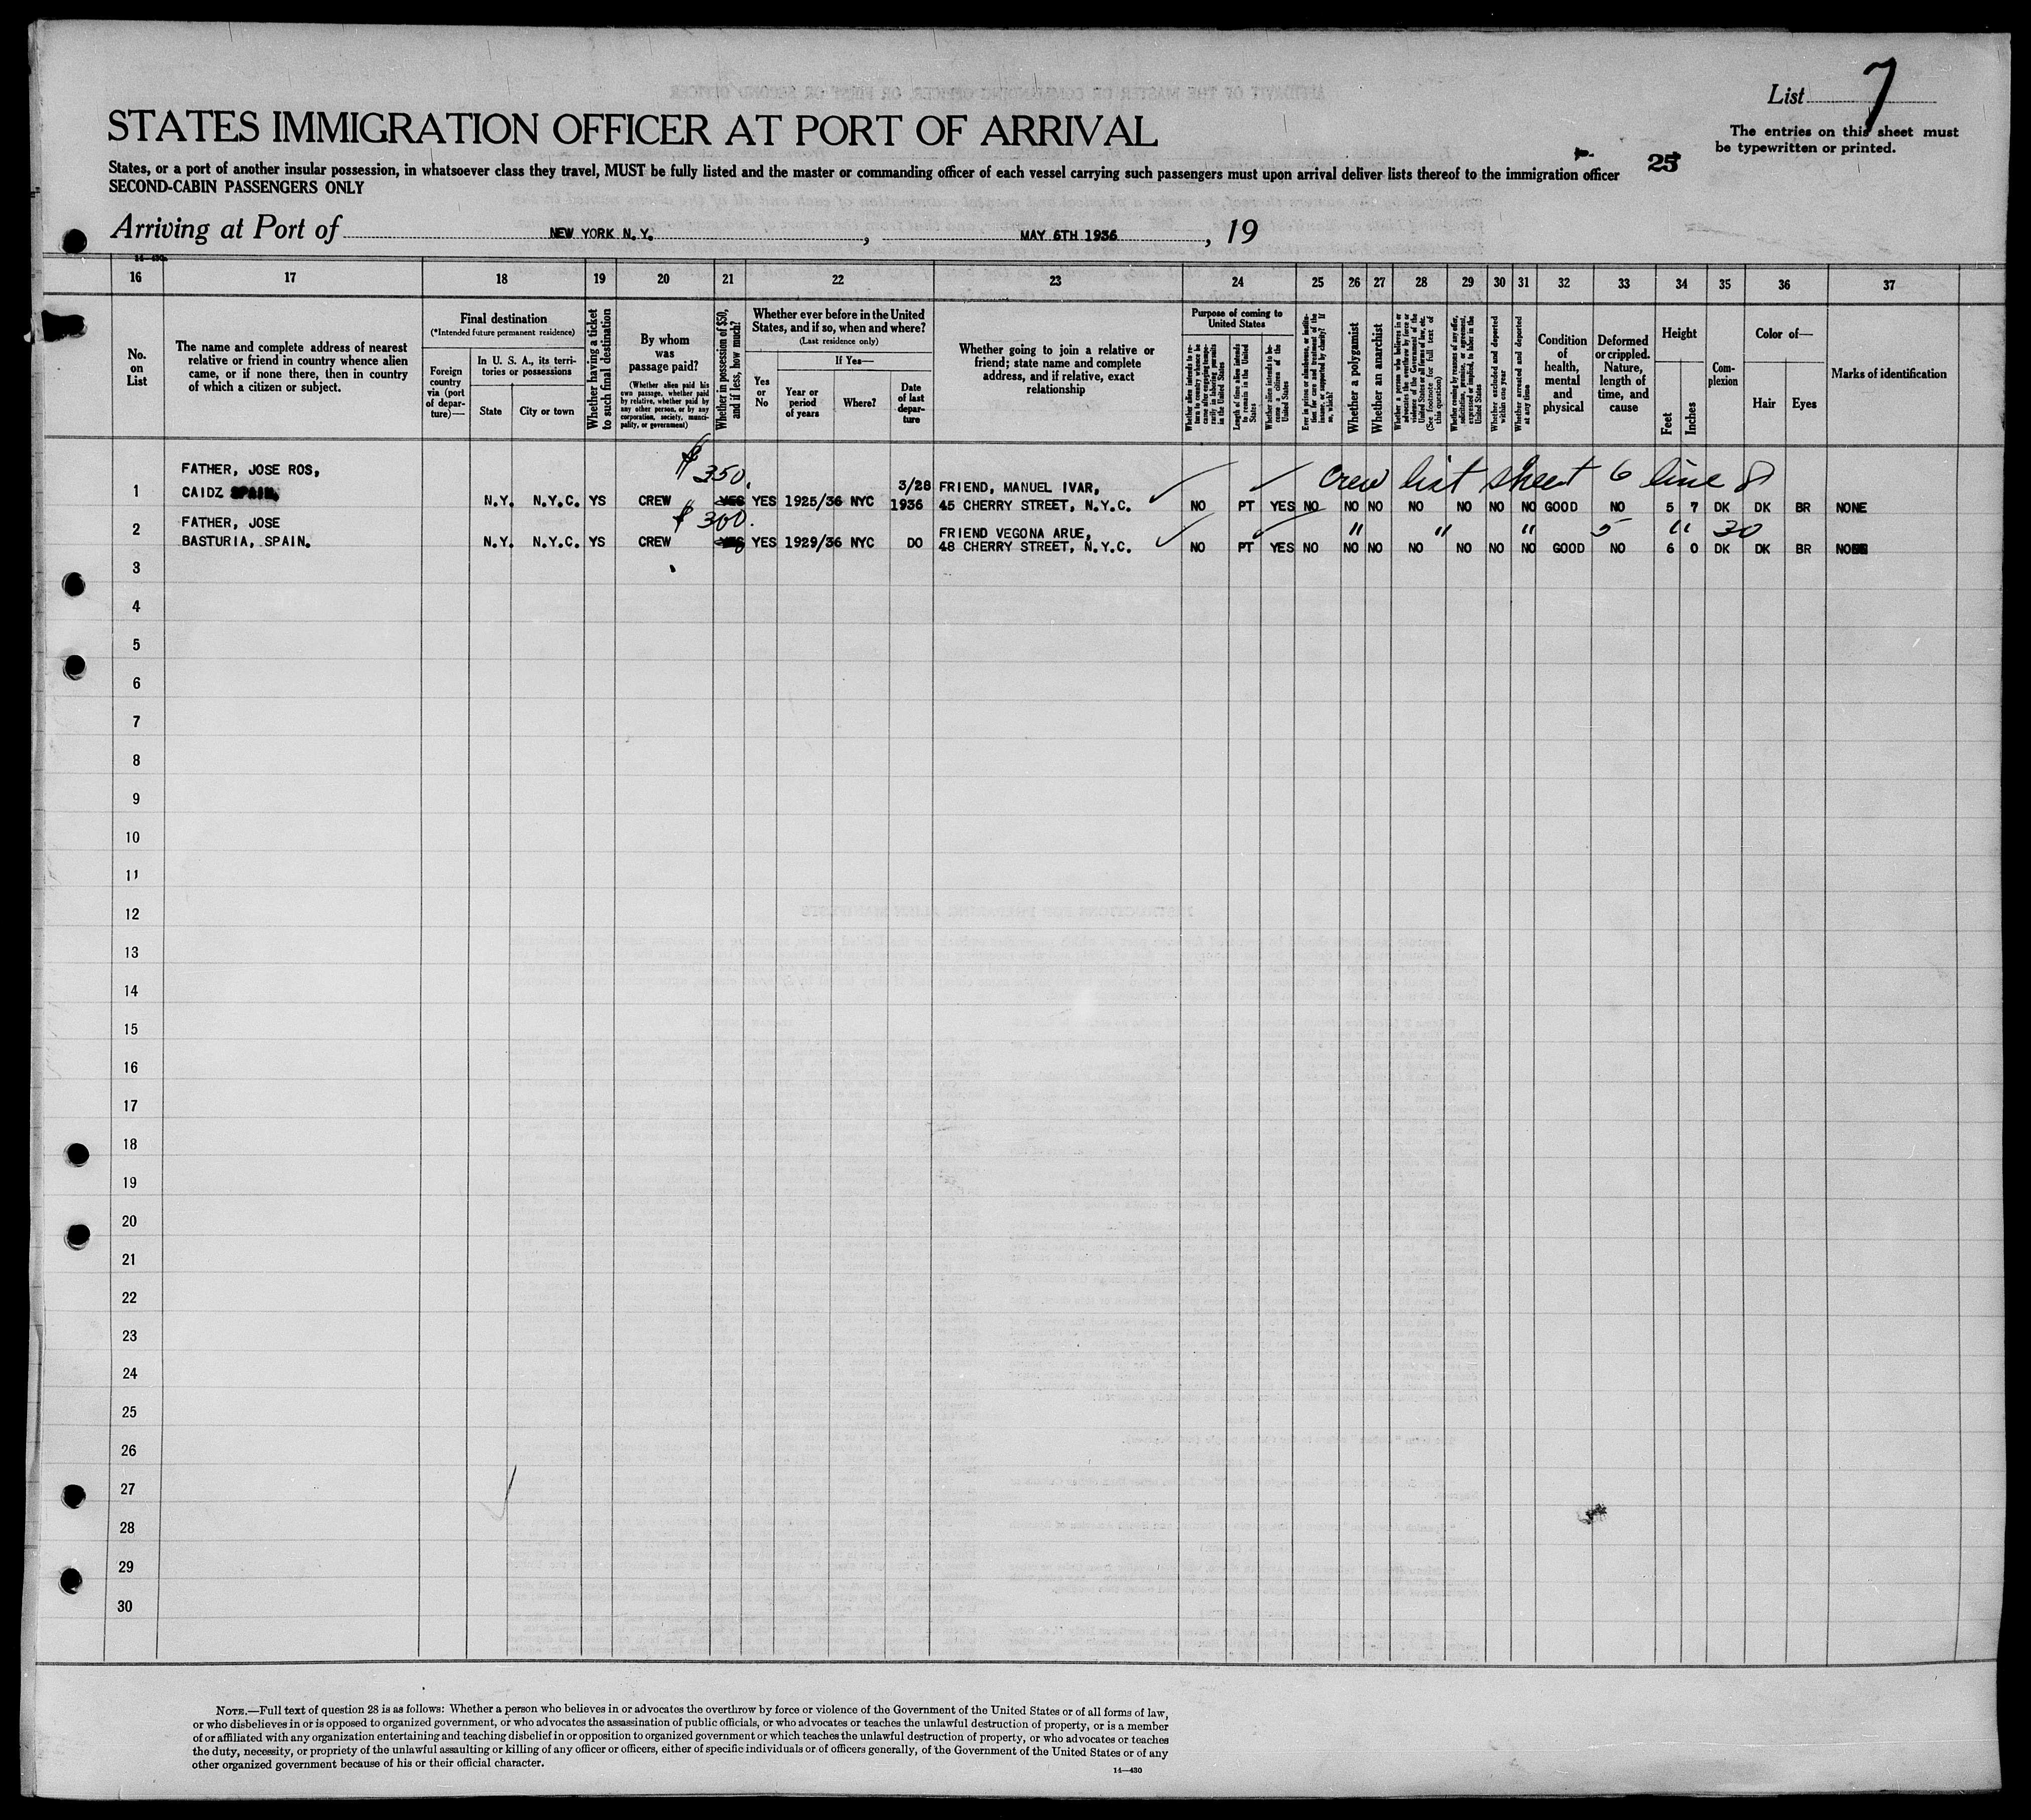 List 7
STATES IMMIGRATION OFFICER AT PORT OF ARRIVAL
The entries on this sheet must
be typewritten or printed.
25
States, or a port of another insular possession, in whatsoever class they travel, MUST be fully listed and the master or commanding officer of each vessel carrying such passengers must upon arrival deliver lists thereof to the immigration officer
SECOND-CABIN PASSENGERS ONLY
Arriving at Port of NEW YORK N.Y. , MAY 6TH 1936 , 19
16 17 18 19 20 21 22 23 24 25 26 27 28 29 30 31 32 33 34 35 36 37
No. on List
The name and complete address of nearest
relative or friend in country whence alien
came, or if none there, then in country
of which a citizen or subject.
Final destination
(*Intended future permanent residence)
Foreign country via (port of departure)—
In U. S. A., its territories or possessions
State
City or town
Whether having a ticket to such final destination
By whom was passage paid?
(Whether alien paid his own passage, whether paid by relative, whether paid by any other person, or by any corporation, society, municipality, or government)
Whether in possession of $50, and if less, how much?
Whether ever before in the United States, and if so, when and where?
(Last residence only)
Yes or No
If Yes—
Year or period of years
Where?
Date of last departure
Whether going to join a relative or
friend; state name and complete
address, and if relative, exact
relationship
Purpose of coming to United States
Whether alien intends to return to country whence he came after engaging temporarily in laboring pursuits in the United States
Length of time alien intends to remain in the United States
Whether alien intends to become a citizen of the United States
Ever in prison or almshouse, or institution for care and treatment of the insane, or supported by charity? If so, which?
Whether a polygamist
Whether an anarchist
Whether a person who believes in or advocates the overthrow by force or violence of the Government of the United States or all forms of law, etc. (See footnote for full text of this question)
Whether coming by reasons of any offer, solicitation, promise, or agreement, expressed or implied, to labor in the United States
Whether excluded and deported within one year
Whether arrested and deported at any time
Condition of health, mental and physical
Deformed or crippled. Nature, length of time, and cause
Height
Feet
Inches
Complexion
Color of—
Hair
Eyes
Marks of identification
$ 350. crew list sheet 6 line 8
FATHER, JOSE ROS, 3/28 FRIEND, MANUEL IVAR,
1 CAIDZ SPAIN. N.Y. N.Y.C. YS CREW YES YES 1925/36 NYC 1936 45 CHERRY STREET, N.Y.C. NO PT YES NO NO NO NO NO NO NO GOOD NO 5 7 DK DK BR NONE
$ 300. " " " 5 " 30
FATHER, JOSE FRIEND VEGONA ARUE,
2 BASTURIA, SPAIN. N.Y. N.Y.C. YS CREW YES YES 1929/36 NYC DO 48 CHERRY STREET, N.Y.C. NO PT YES NO NO NO NO NO NO NO GOOD NO 6 0 DK DK BR NONE
3
4
5
6
7
8
9
10
11
12
13
14
15
16
17
18
19
20
21
22
23
24
25
26
27
28
29
30
NOTE.—Full text of question 28 is as follows: Whether a person who believes in or advocates the overthrow by force or violence of the Government of the United States or of all forms of law,
or who disbelieves in or is opposed to organized government, or who advocates the assassination of public officials, or who advocates or teaches the unlawful destruction of property, or is a member
of or affiliated with any organization entertaining and teaching disbelief in or opposition to organized government or which teaches the unlawful destruction of property, or who advocates or teaches
the duty, necessity, or propriety of the unlawful assaulting or killing of any officer or officers, either of specific individuals or of officers generally, of the Government of the United States or of any
other organized government because of his or their official character.
14—430